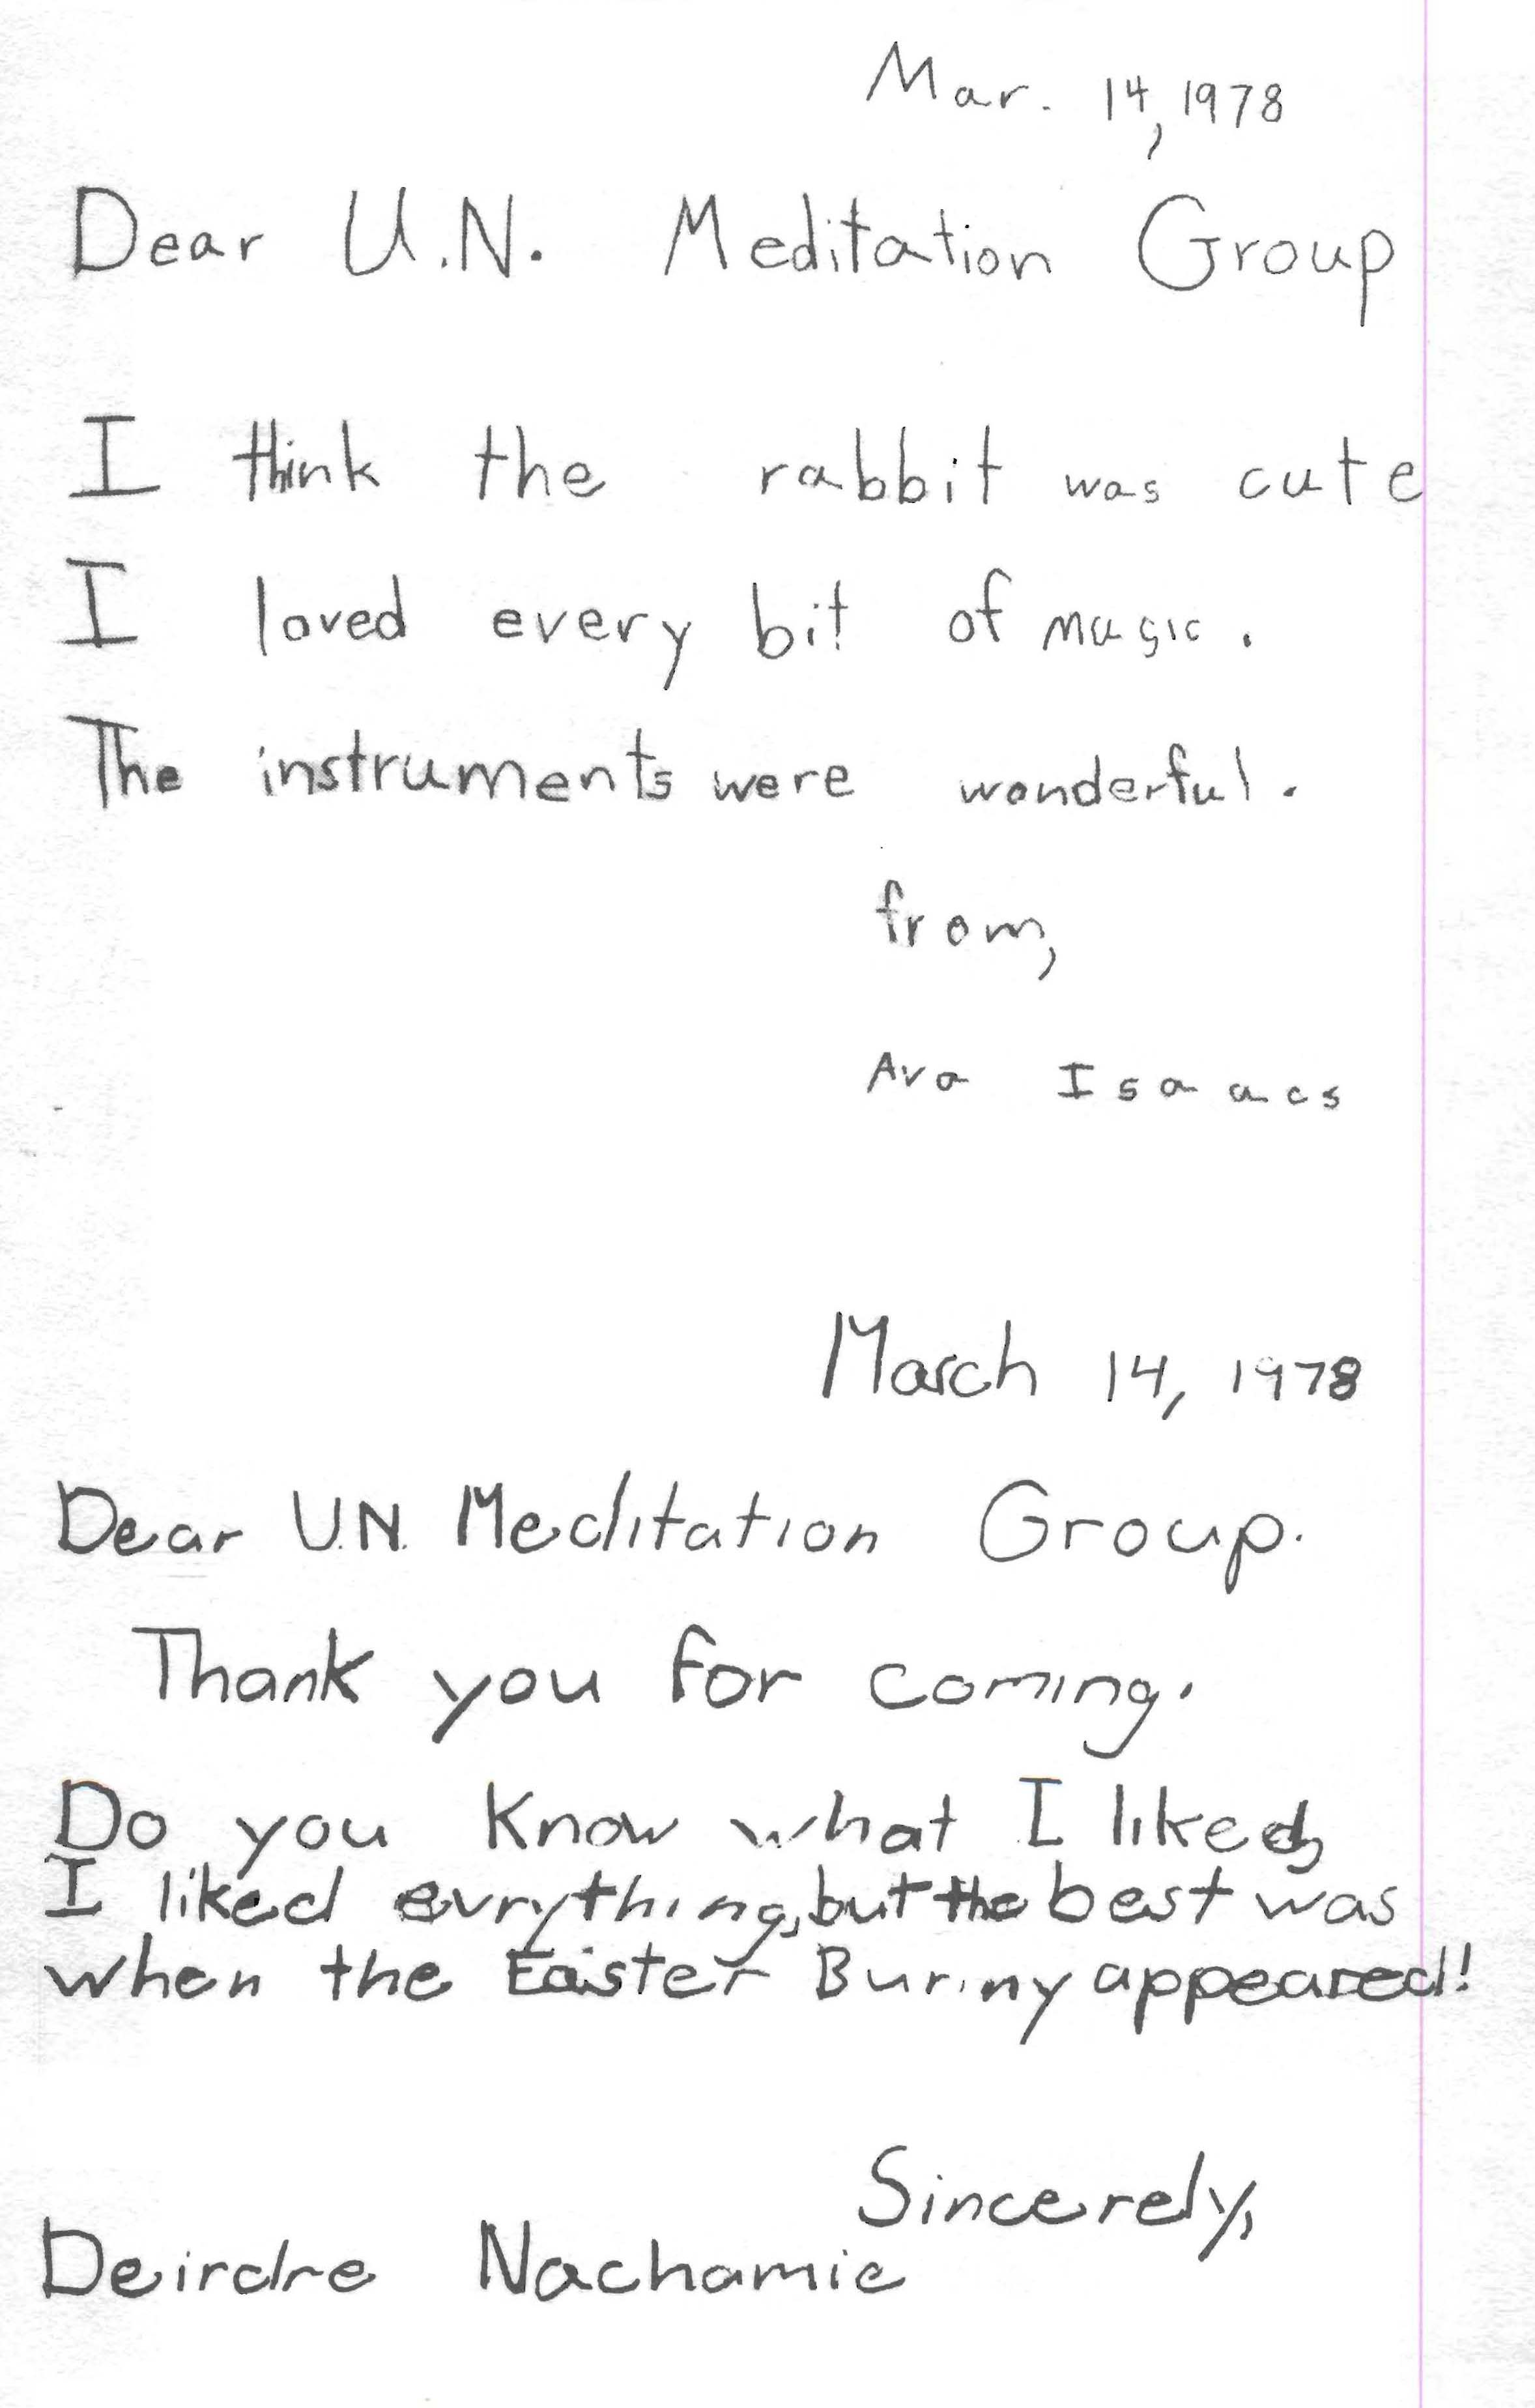 Mar. 14, 1978
Dear U.N. Meditation Group
I think the rabbit was cute
I loved every bit of magic.
The instruments were wonderful.
from,
Ava Isaacs
March 14, 1978
Dear U.N. Meditation Group.
Thank you for coming.
Do you know what I liked,
I liked evrything, but the best was
when the Easter Bunny appeared!
Sincerely,
Deirdre Nachamie